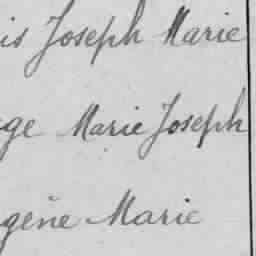 is Joseph Marie
ge Marie Joseph
gène Marie